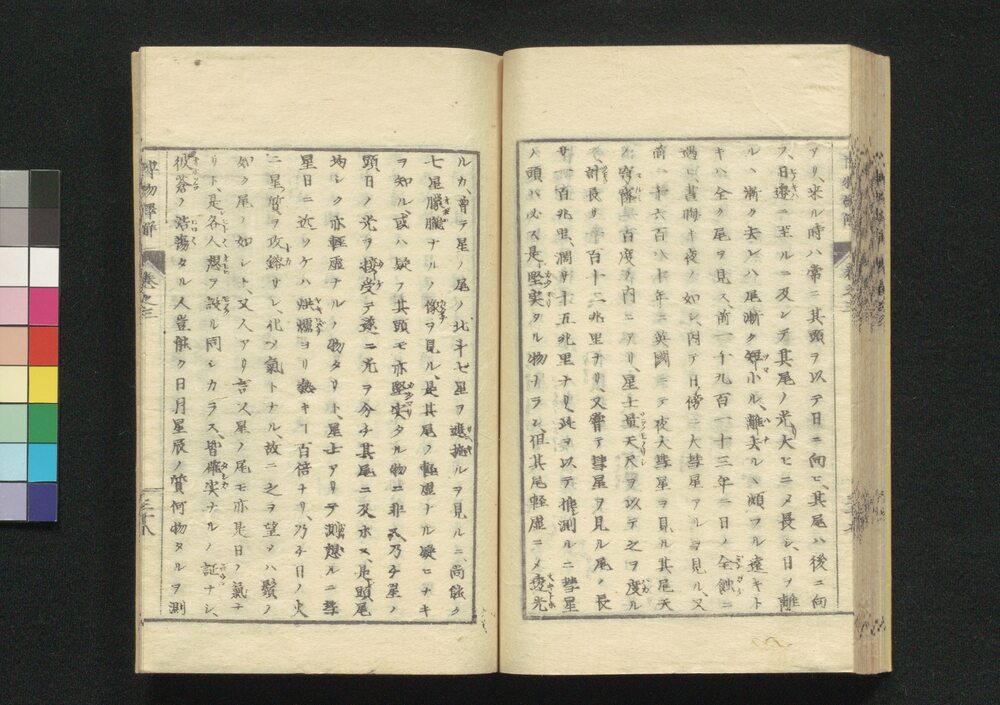 アリ、来ル時ハ常ニ其頭ヲ以テ日ニ向ヒ、其尾ハ後ニ向
フ、日邊ニ至ルニ及ンテ其尾ノ光大ヒニメ長シ、日ヲ離
ルヽ漸ク夫レハ尾漸ク短小ル、離夫ルヽ頗フル遠キト
キハ全ク尾ヲ見ス、前一千九百一十三年ニ日ノ全蝕ニ
遇ヒ、晝晦キ夜ノ如シ、因テ日傍ニ大彗星アルヲ見ル、又
前一千六百八十年ニ英國ニテ夜大彗星ヲ見ル其尾天
百度ノ内ニアリ、星士量天尺ヲ以テ之ヲ度ル
ニ、計長サ一百十二兆里ナリ、又曽テ彗星ヲ見ル尾ノ長
サ四百兆里、濶サ十五兆里ナリ、此ヲ以テ推測ルニ彗星
ノ頭ハ必ス是堅実タル物ナラン、但其尾軽虚ニメ透光
ルカ、曽テ星ノ尾ノ北斗七星ヲ遮掩ルヲ見ルニ、尚能ク
七星朦朧ナルノ像ヲ見ル、是其尾ノ軽虚ナル疑ヒナキ
ヲ知ル、或ハ疑フ其頭モ亦堅実タル物ニ非ス、乃チ星ノ
頭日ノ光ヲ接受テ遂ニ光ヲ分チ其尾ニ及ホス、是頭尾
均シク亦軽虚ナルノ物タリト、星士アリテ測想ルニ彗
星日ニ近ツケハ烘爐ヨリ熱キ一百倍ナリ、乃チ日ノ火
ニ星ノ質ヲ攻鎔サレ、化ツ氣トナル、故ニ之ヲ望メハ鬚ノ
如ク尾ノ如シト、又人アリ言ス星ノ尾モ亦是日ノ氣ナ
リト、是各人想ヲ設ル同シカラス、皆確実ナルノ証ナシ、
彼蒼ノ浩蕩タル人豈能ク日月星辰ノ質何物タルヲ測
博物
巻之三
三十八